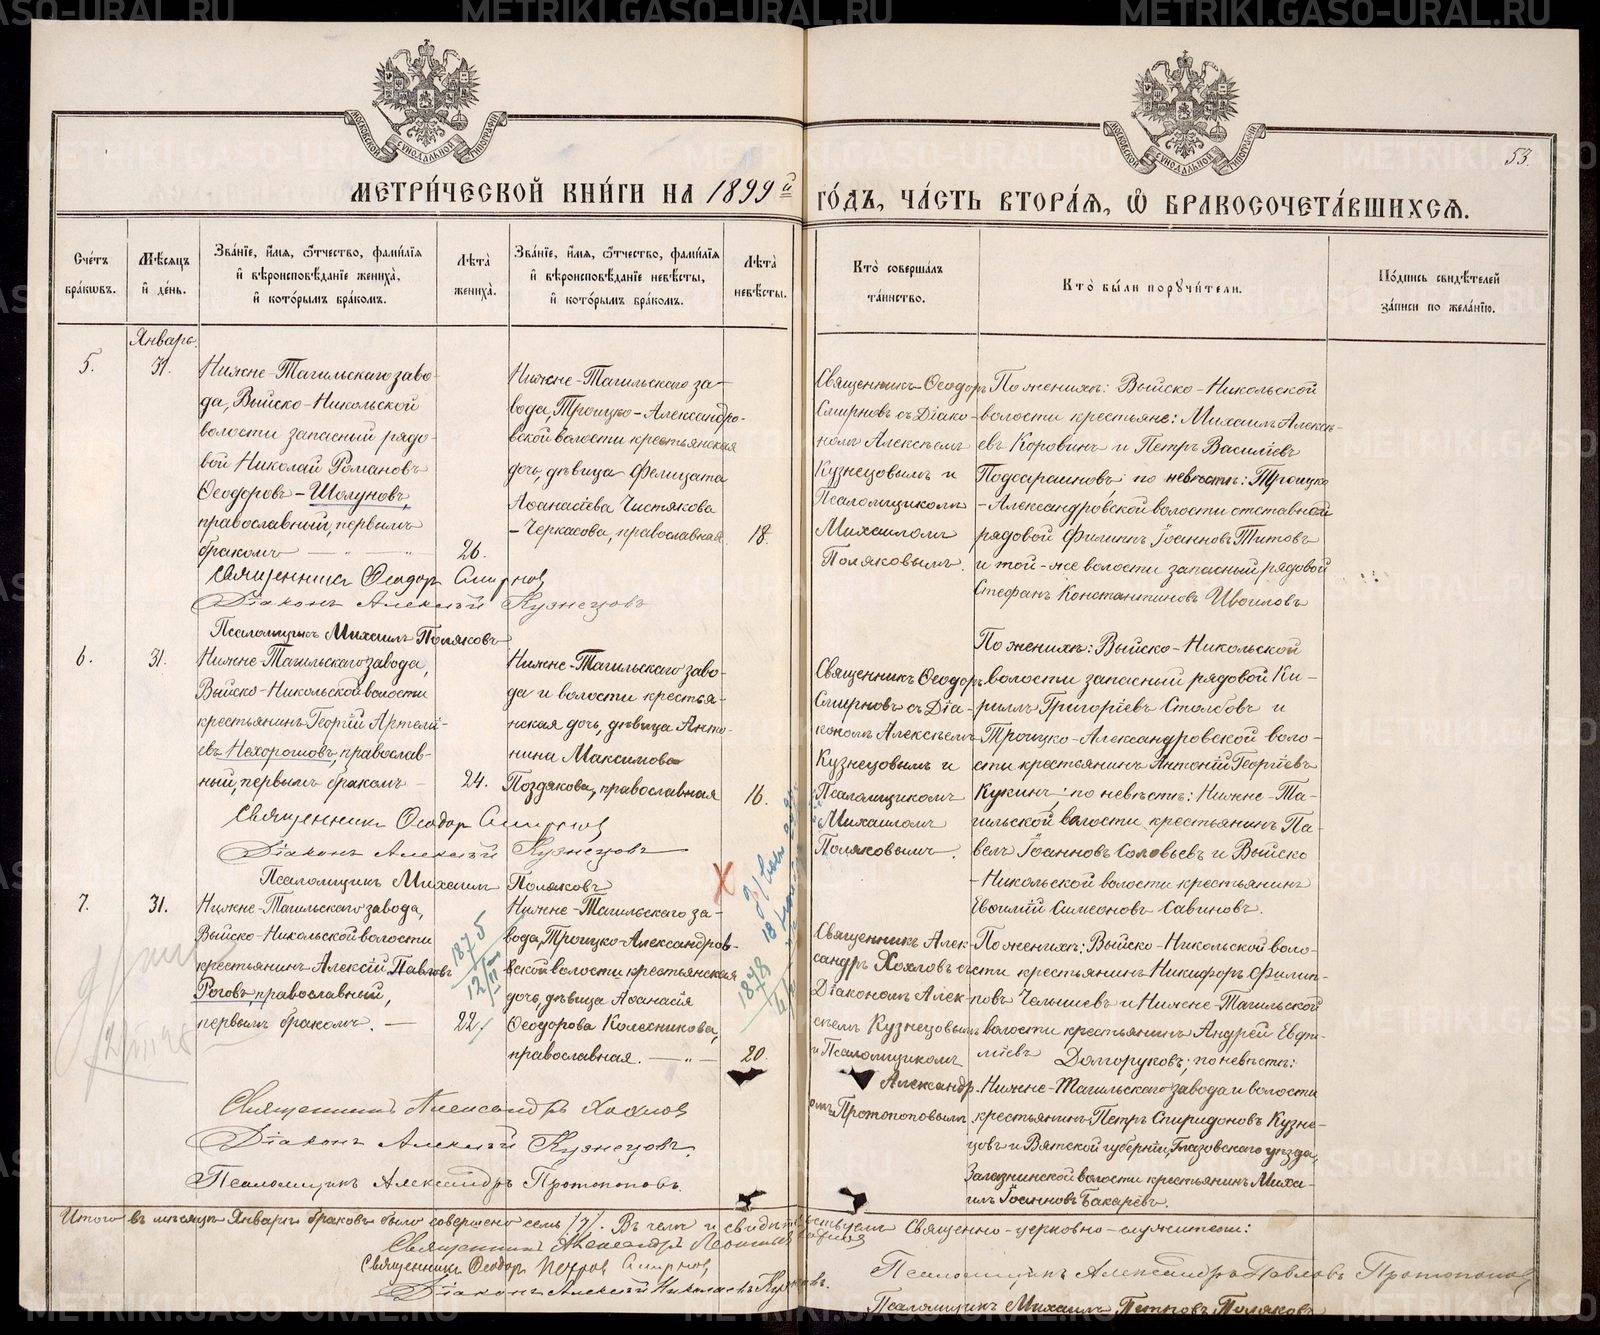 МЕТРИ́ЧЕСКОЙ КНИ́ГИ НА 1899й ГО́ДЪ, ЧА́СТЬ ВТОРА́Ѧ, Ѽ БРАКОСОЧЕТА́ВШИХСѦ.
53.
Сче́тъ бра́кѡвъ.
Мѣ́сяцъ и҆ де́нь.
Зва́нїе, и҆́мя, ѻ҆́тчество, фами́лїя и҆ вѣроисповѣ́данїе жениха̀, и҆ кото́рымъ бра́комъ.
Лѣта̀ жениха̀.
Зва́нїе, и҆́мя, ѻ҆́тчество, фами́лїя и҆ вѣроисповѣ́данїе невѣ́сты, и҆ кото́рымъ бра́комъ.
Лѣта̀ невѣ́сты.
Кто̀ соверша́лъ та́инство.
Кто̀ бы́ли порꙋчи́тели.
По́дпись свидѣ́телей за́писи по жела́нїю.
Январь.
5.
31.
Нижне-Тагильскаго заво-
да, Выйско-Никольской
волости запасный рядо-
вой Николай Романовъ
Ѳеодоровъ-Шолуновъ,
православный, первымъ
бракомъ
26.
Нижне-Тагильскаго за-
вода, Троицко-Александро-
вской волости крестьянская
дочь, дѣвица Фелицата
Аѳанасіева Чистякова
-Черкасова, православная
18.
Священникъ Ѳеодоръ
Смирновъ съ Діако-
номъ Алексѣемъ
Кузнецовымъ и
Псаломщикомъ
Михаиломъ
Поляковымъ.
По женихѣ: Выйско-Никольской
волости крестьяне: Михаилъ Алексѣ-
евъ Коровинъ и Петръ Василіевъ
по невѣстѣ: Троицко
-Александровской волости отставной
рядовой Филиппъ Іоанновъ Титовъ
и той-же волости запасный рядовой
Стефанъ Константиновъ
Священникъ Ѳеодоръ Смирновъ
Діаконъ Алексѣй Кузнецовъ
Псаломщикъ Михаилъ Поляковъ
6.
31.
Нижне-Тагильскаго завода,
Выйско-Никольской волости
крестьянинъ Георгій Артемі-
евъ Нехорошовъ, православ-
ный, первымъ бракомъ
24.
Нижне-Тагильскаго заво-
да и волости крестья-
нская дочь, дѣвица Анто-
нина Максимова
Поздякова, православная
16.
Священникъ Ѳеодоръ
Смирновъ съ Діа-
кономъ Алексѣемъ
Кузнецовымъ и
Псаломщикомъ
Михаиломъ
Поляковымъ.
По женихѣ: Выйско-Никольской
волости запасный рядовой Ки-
риллъ Григоріевъ Столбовъ и
Троицко-Александровской воло-
сти крестьянинъ Антоній Георгіевъ
Кукинъ; по невѣстѣ: Нижне-Та-
гильской волости крестьянинъ Па-
велъ Іоанновъ Соловьевъ и Выйско
-Никольской волости крестьянинъ
Евѳимій Симеоновъ Савиновъ.
Священникъ Ѳеодоръ Смирновъ
Діаконъ Алексѣй Кузнецовъ
Псаломщикъ Михаилъ Поляковъ
7.
31.
Нижне-Тагильскаго завода,
Выйско-Никольской волости
крестьянинъ Алексій Павловъ
Роговъ, православный,
первымъ бракомъ.
1875
12/III
22.
Нижне-Тагильскаго за-
вода, Троицко-Александров-
вской волости крестьянская
дочь, дѣвица Аѳанасія
Ѳеодорова Колесникова,
православная.
1878
20.
Священникъ Алек-
сандръ Хохловъ съ
Діакономъ Алек-
сѣемъ Кузнецовымъ
и Псаломщикомъ
Александр
омъ Протопоповымъ
По женихѣ: Выйско-Никольской воло-
сти крестьянинъ Никифоръ Филип-
повъ Челышевъ и Нижне-Тагильской
волости крестьянинъ Андрей Евдо-
Долгоруковъ; по невѣстѣ:
Нижне-Тагильскаго завода и волости
крестьянинъ Петръ Спиридоновъ Кузне-
цовъ и Вятской губерніи, Глазовскаго уѣзда,
Залазнинской волости крестьянинъ Миха-
илъ Іоанновъ Бакаревъ.
Священникъ Александръ Хохловъ
Діаконъ Алексѣй Кузнецовъ.
Псаломщикъ Александръ Протопоповъ.
Итого въ мѣсяцѣ Январѣ браковъ было совершено семь /7/. Въ чемъ и свидѣтельствуемъ Священно-церковно-служители:
Священникъ Александръ
Священникъ Ѳеодоръ Петровъ Смирновъ
Діаконъ Алексѣй Николаевъ Кузнецовъ.
Псаломщикъ Александръ Павловъ Протопоповъ
Псаломщикъ Михаилъ Петровъ Поляковъ
METRIKI.GASO-URAL.RU